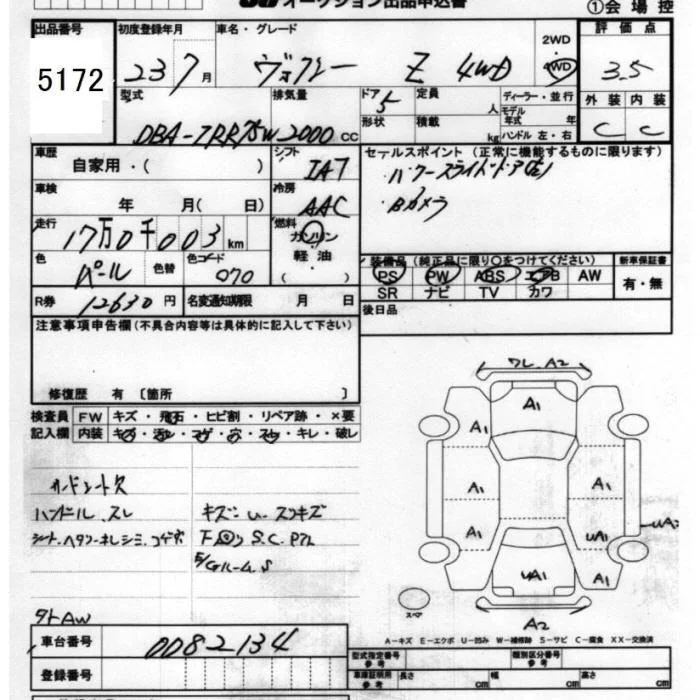 オークション出品申込書
①会場控
出品番号 初度登録年月 車名・グレード 2WD 4WD 評価点
5172 23 7月 ヴォクシー Z 4WD 3.5
型式 排気量 ドア 5 定員 人 ディーラー・並行 外装 内装
DBA-ZRR75W 2000 cc 形状 積載 kg モデル年式 年 ハンドル 左・右 C C
車歴 自家用・( ) シフト IAT
セールスポイント (正常に機能するものに限ります)
パワースライドドア(左)
Bカメラ
車検 年 月( 日) 冷房 AAC
走行 17万0千003km 燃料 ガソリン 軽油 ( )
色 パール 色替 色コード 070
装備品 (純正品に限り〇をつけてください) 新車保証書
PS PW ABS エアB AW 有・無
SR ナビ TV カワ
R券 12630円 名変通知期限 月 日
後日品
注意事項申告欄(不具合内容等は具体的に記入して下さい)
修復歴 有 〔箇所 〕
検査員 FW キズ・飛石・ヒビ割・リペア跡・×要
記入欄 内装 キズ・汚レ・コゲ・穴・スレ・キレ・破レ
ワレ.A2
A1
A1 A1
A1 A1
A1 UA1 UA2
UA1 A1
スペア
A2
ハンドル スレ
シート.ヘタリ.キレ.シミ.コゲ穴
キズ・U・スリキズ
下回り S.C.Pスレ
E/Gルーム S
社外AW
車台番号 0082134
登録番号
A−キズ E−エクボ U−凹み W−補修跡 S−サビ C−腐食 XX−交換済
型式指定番号 参考 類別区分番号 参考
車庫証明用 参考 長さ cm 幅 cm 高さ cm